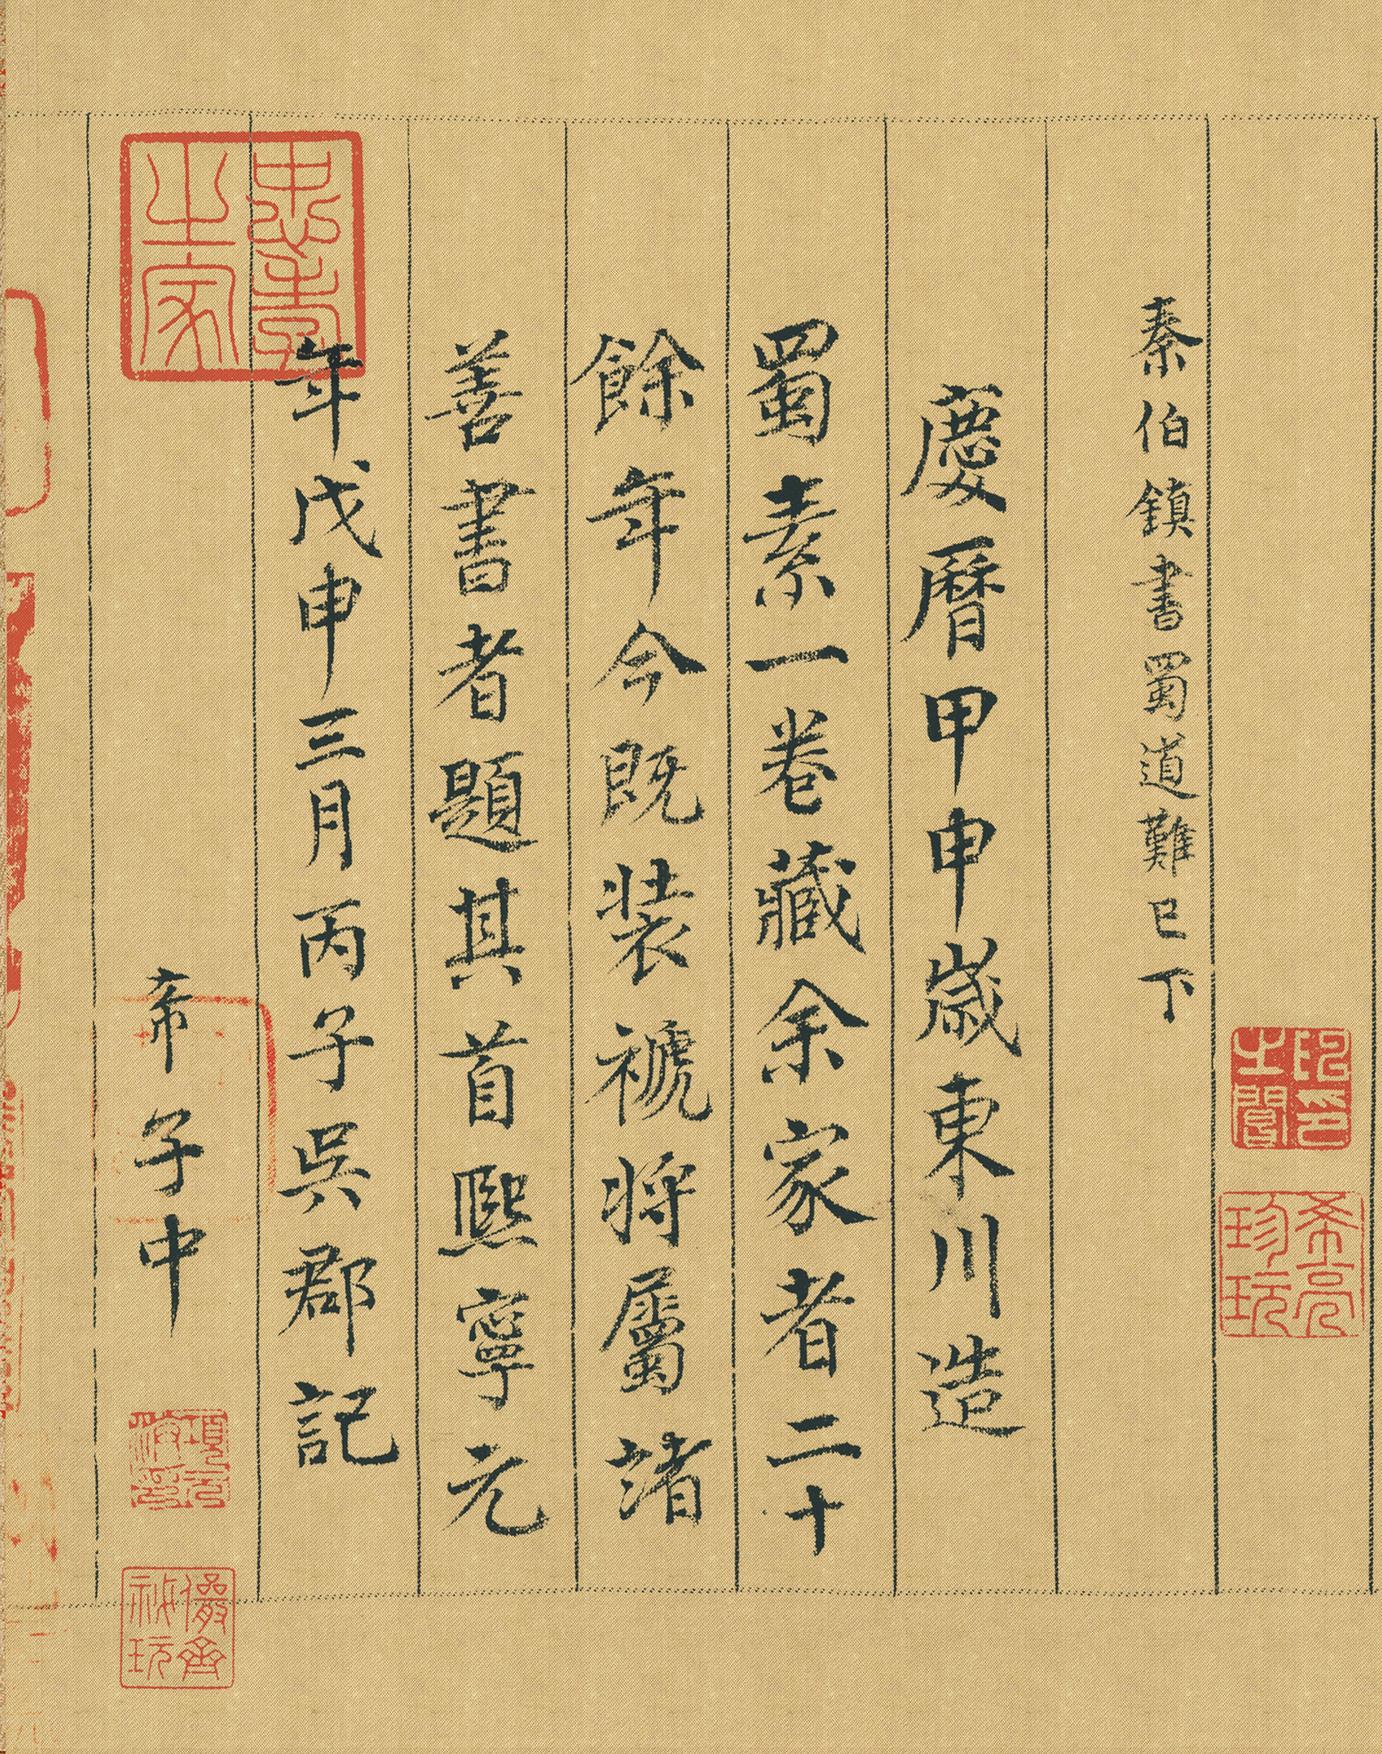 秦伯鎮書蜀道難已下
慶曆甲申歲東川造
蜀素一卷藏余家者二十
餘年今既裝褫將屬諸
善書者題其首熙寧元
年戊申三月丙子吳郡記
忠孝之家
希子中
項元汴印
儼齋秘玩